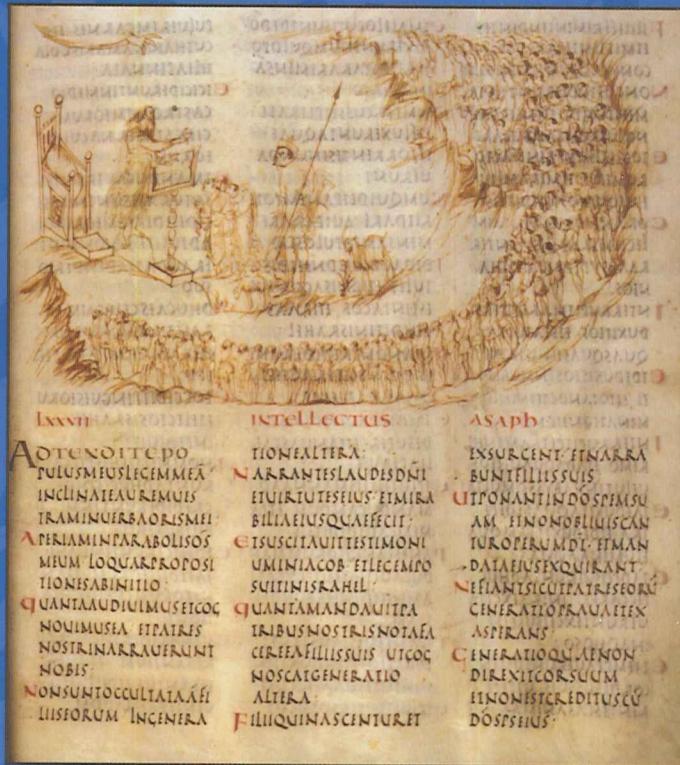 LXXVII INTELLECTUS ASAPH
ADTENDITEPO
PULUSMEUSLEGEMMEÃ
INCLINATEAUREMUES
TRAMINUERBAORISMEI·
APERIAMINPARABOLISOS
MEUM LOQUARPROPOSI
TIONESABINITIO·
QUANTAAUDIUIMUSETCOG
NOUIMUSEA ETPATRES
NOSTRINARRAUERUNT
NOBIS·
NONSUNTOCCULTATAAFI
LIISEORUM INGENERA
TIONEALTERA·
NARRANTESLAUDESDÑI
ETUIRTUTESEIUS ETMIRA
BILIAEIUSQUAEFECIT·
ETSUSCITAUITTESTIMONI
UMINIACOB ETLEGEMPO
SUITINISRAHEL·
QUANTAMANDAUITPA
TRIBUSNOSTRISNOTAFA
CEREEAFILIISSUIS UTCOG
NOSCATGENERATIO
ALTERA·
FILIIQUINASCENTURET
EXSURGENT· ETNARRA
BUNTFILIISSUIS·
UTPONANTINDÕSPEMSU
AM ETNONOBLIUISCAN
TUROPERUMDĨ· ETMAN
DATAEIUSEXQUIRANT·
NEFIANTSICUTPATRESEORŨ
GENERATIOPRAUAETEX
ASPERANS·
GENERATIOQUAENON
DIREXITCORSUUM
ETNONESTCREDITUSCŨ
DÕSPSEIUS·